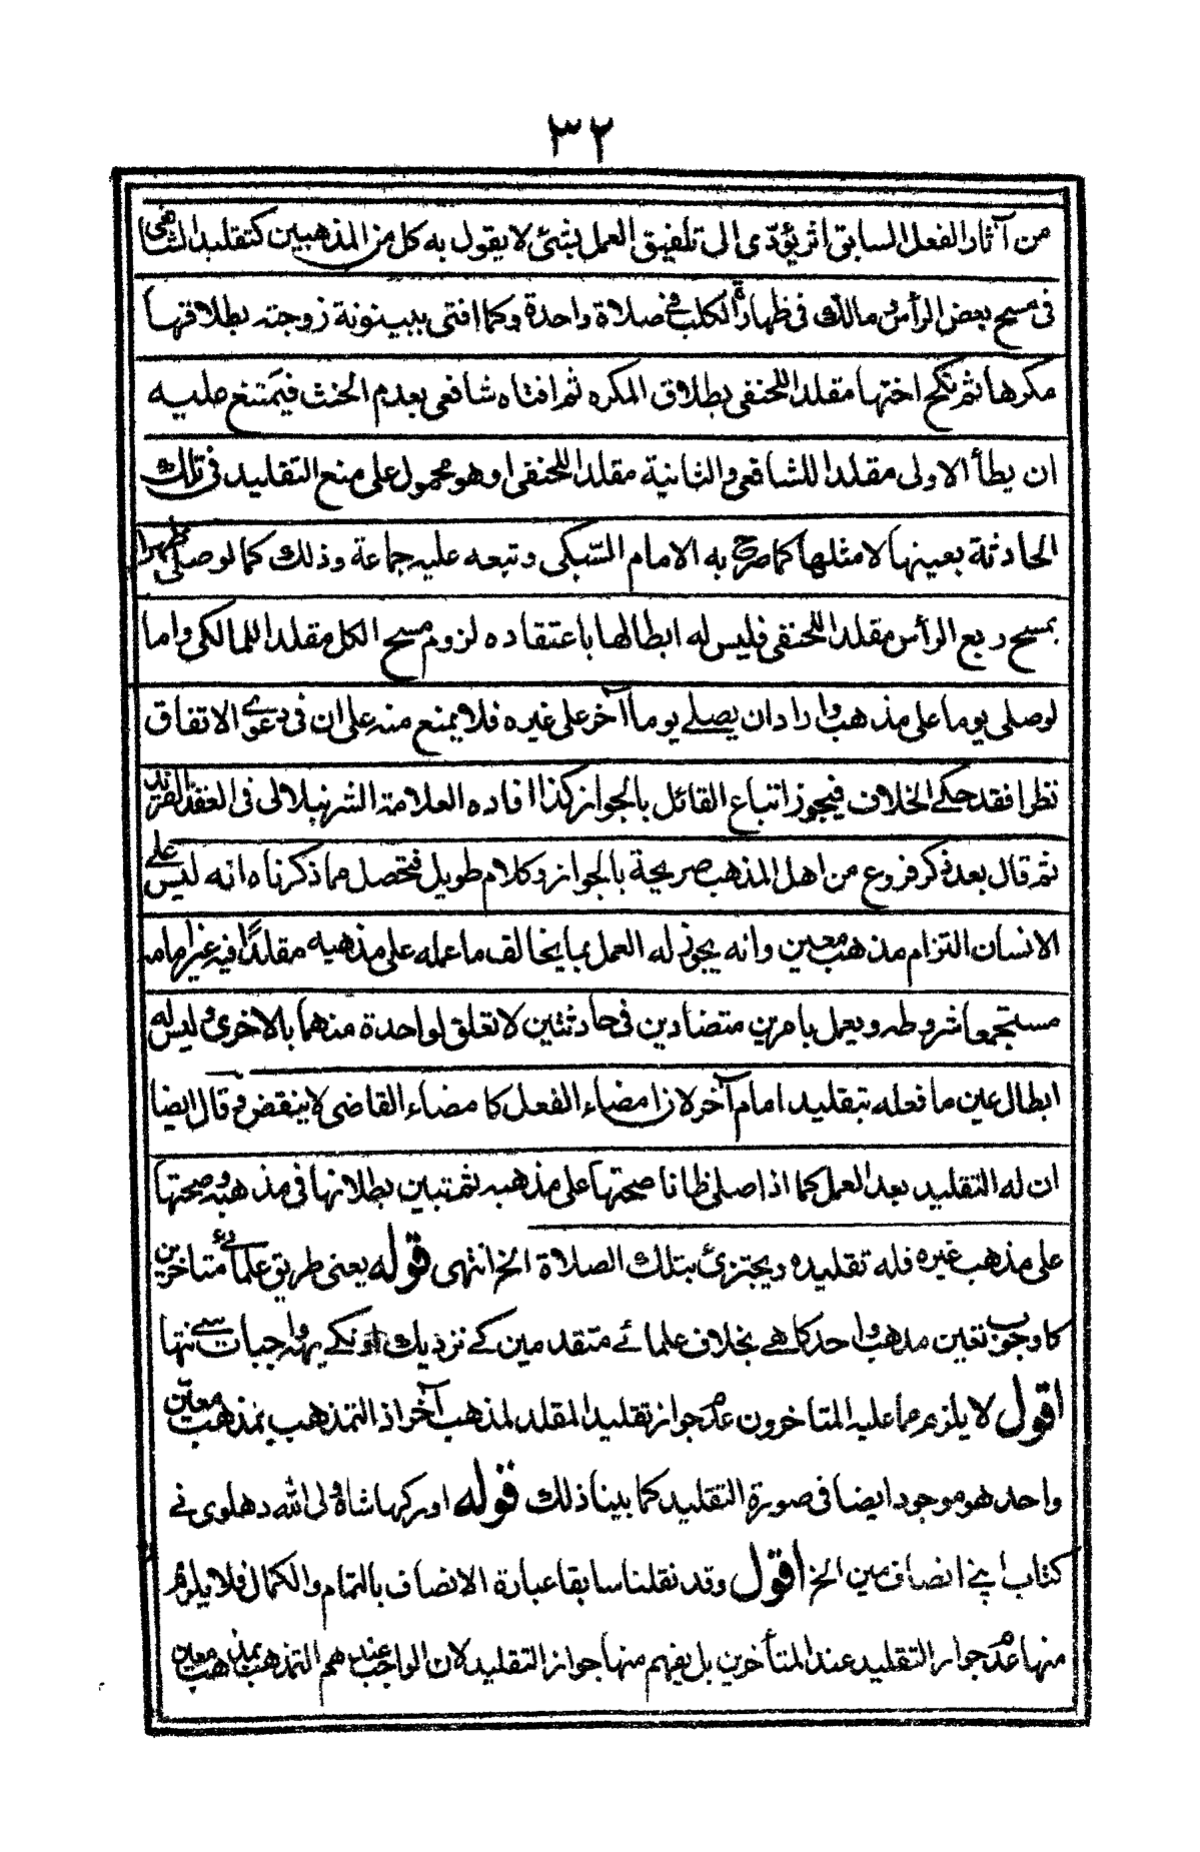 ٣٢
من آثار الفعل السابق اثر يؤدّى الى تلفيق العمل بشئ لا يقول به كل من المذهبين كتقليد الشافعى
فى مسح بعض الرأس و مالك فى طهارة الكلب فى صلاة واحدة وكما افتى ببينونة زوجته بطلاقها
مكرها ثم نكح اختها مقلدا للحنفى بطلاق المكره ثم افتاه شافعى بعدم الحنث فيمتنع عليه
ان يطأ الاولى مقلدا للشافعى والثانية مقلدا للحنفى وهو محمول على منع التقليد فى تلك
الحادثة بعينها لا مثلها كما صرح به الامام السّبكى وتبعه عليه جماعة وذلك كما لو صلى ظهرا
بمسح ربع الرأس مقلدا للحنفى فليس له ابطالها باعتقاده لزوم مسح الكل مقلدا للمالكى واما
لو صلى يوما على مذهب واراد ان يصلے يوما آخر على غيره فلا يمنع منه على ان فى دعوے الاتفاق
نظرا فقد حكے الخلاف فيجوز اتباع القائل بالجواز كذا افاده العلامة الشرنبلالى فى العقد الفريد
ثم قال بعد ذكر فروع من اهل المذهب صريحة بالجواز وكلام طويل فتحصل مما ذكرناه انه ليس علے
الانسان التزام مذهب معين وانه يجوز له العمل بما يخالف ما عمله على مذهبه مقلدًا فيه غير امامه
مستجمعا شروطه و يعمل بامرين متضادين فى حادثتين لا تعلق لواحدة منهما بالاخرى و ليس له
ابطال عين ما فعله بتقليد امام آخر لان امضاء الفعل كا مضاء القاضى لا ينقض و قال ايضا
ان له التقليد بعد العمل كما اذا صلى ظانا صحتها على مذهبه ثم تبين بطلانها فى مذهبه و صحتها
على مذهب غيره فله تقليده و يجتزئ بتلك الصلاة الخ انتهى قوله يعنى طريق علمائے متاخرين
كا وجوب تعين مذهب واحد كا هے بخلاف علمائے متقدمين كے نزديك اونكے يهه واجبات سے نتها
اقول لا يلزم مما عليه المتاخرون عدم جواز تقليد المقلد لمذهب آخر اذ التمذهب بمذهب معين
واحد هو موجود ايضا فى صورة التقليد كما بينا ذلك قوله اور كها شاه ولى الله دهلوى نے
كتاب اپنے انصاف مين الخ اقول وقد نقلنا سابقا عبارة الانصاف بالتمام والكمال فلا يلزم
منها عدم جواز التقليد عند المتأخرين بل يفهم منها جواز التقليد لان الواجب عندهم التمذهب بمذهب معين